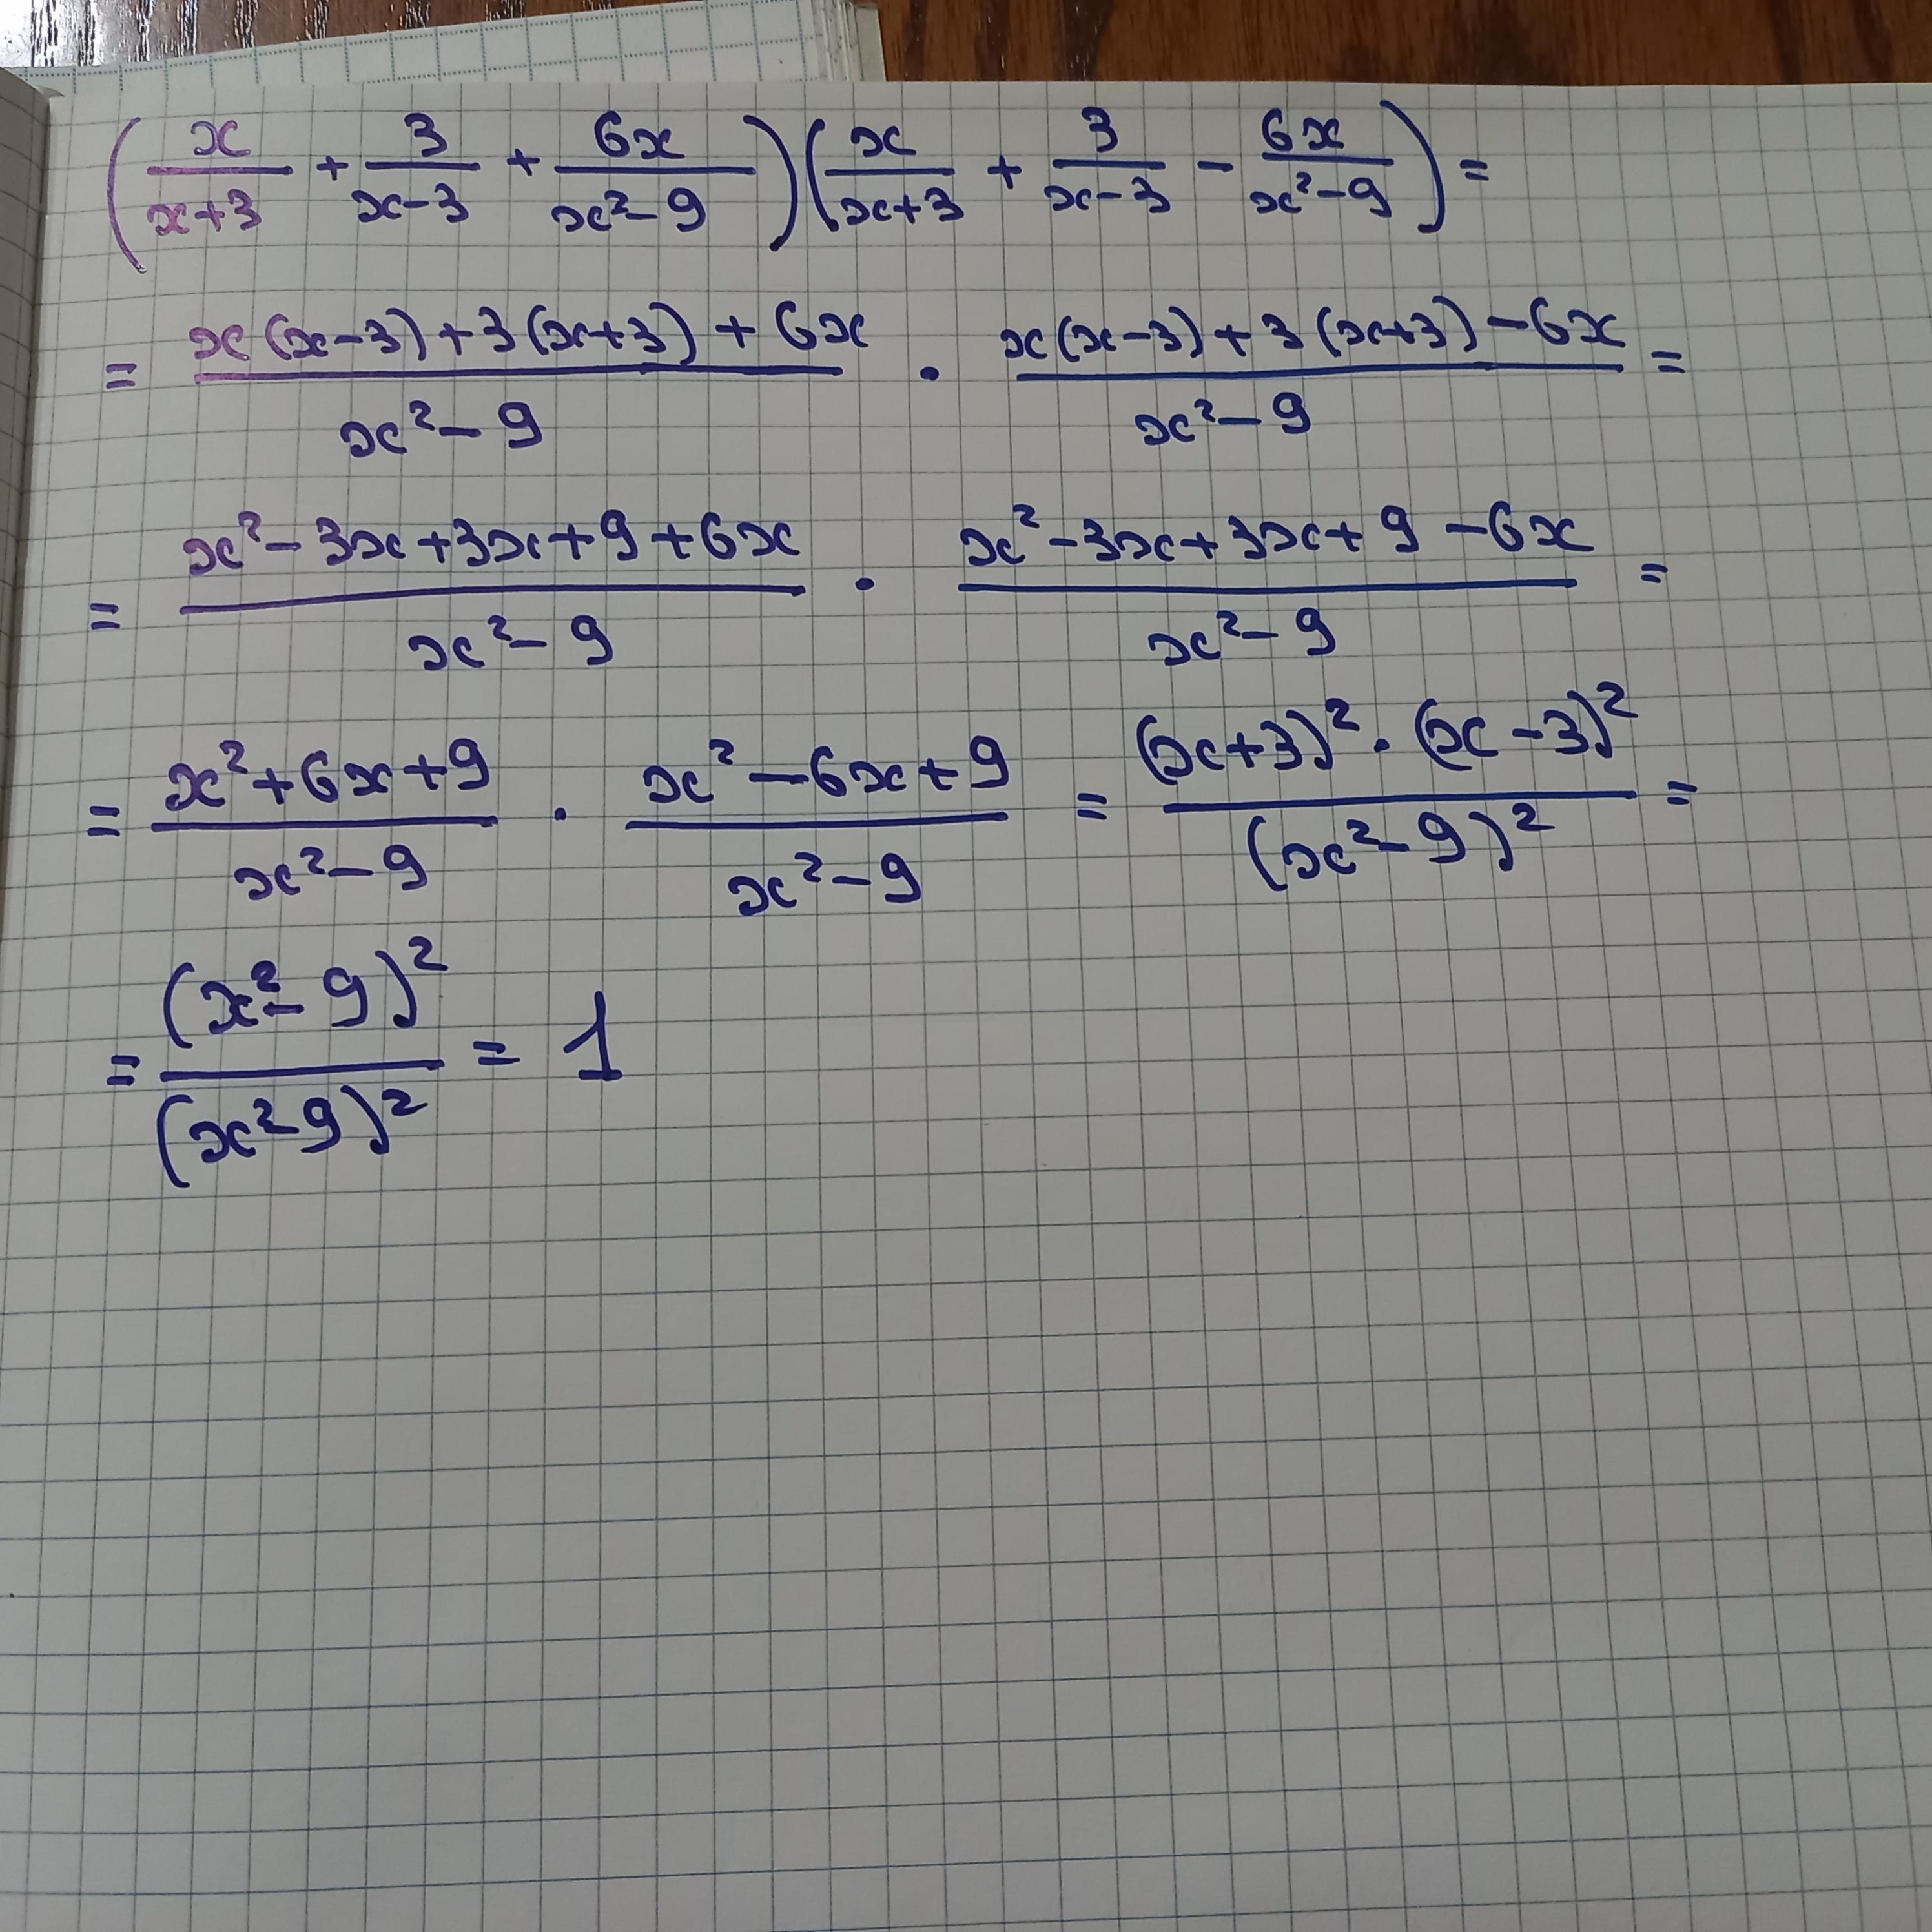 (x/(x+3) + 3/(x-3) + 6x/(x²-9))(x/(x+3) + 3/(x-3) - 6x/(x²-9)) =
= (x(x-3)+3(x+3)+6x)/(x²-9) · (x(x-3)+3(x+3)-6x)/(x²-9) =
= (x²-3x+3x+9+6x)/(x²-9) · (x²-3x+3x+9-6x)/(x²-9) =
= (x²+6x+9)/(x²-9) · (x²-6x+9)/(x²-9) = ((x+3)²·(x-3)²)/(x²-9)² =
= (x²-9)²/(x²-9)² = 1